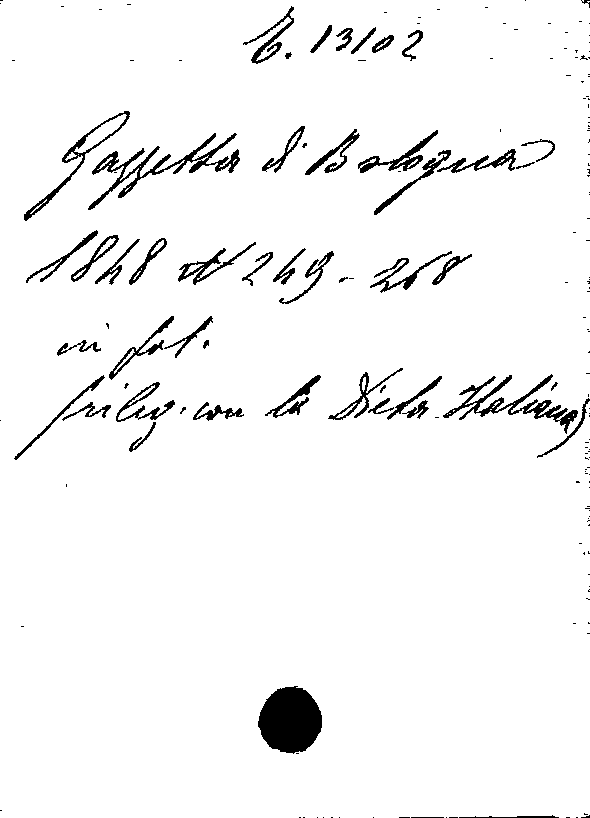 E. 13102
Gazzetta di Bologna
1848 N 249 - 268
in fol.
(rileg. con la Dieta Italiana)